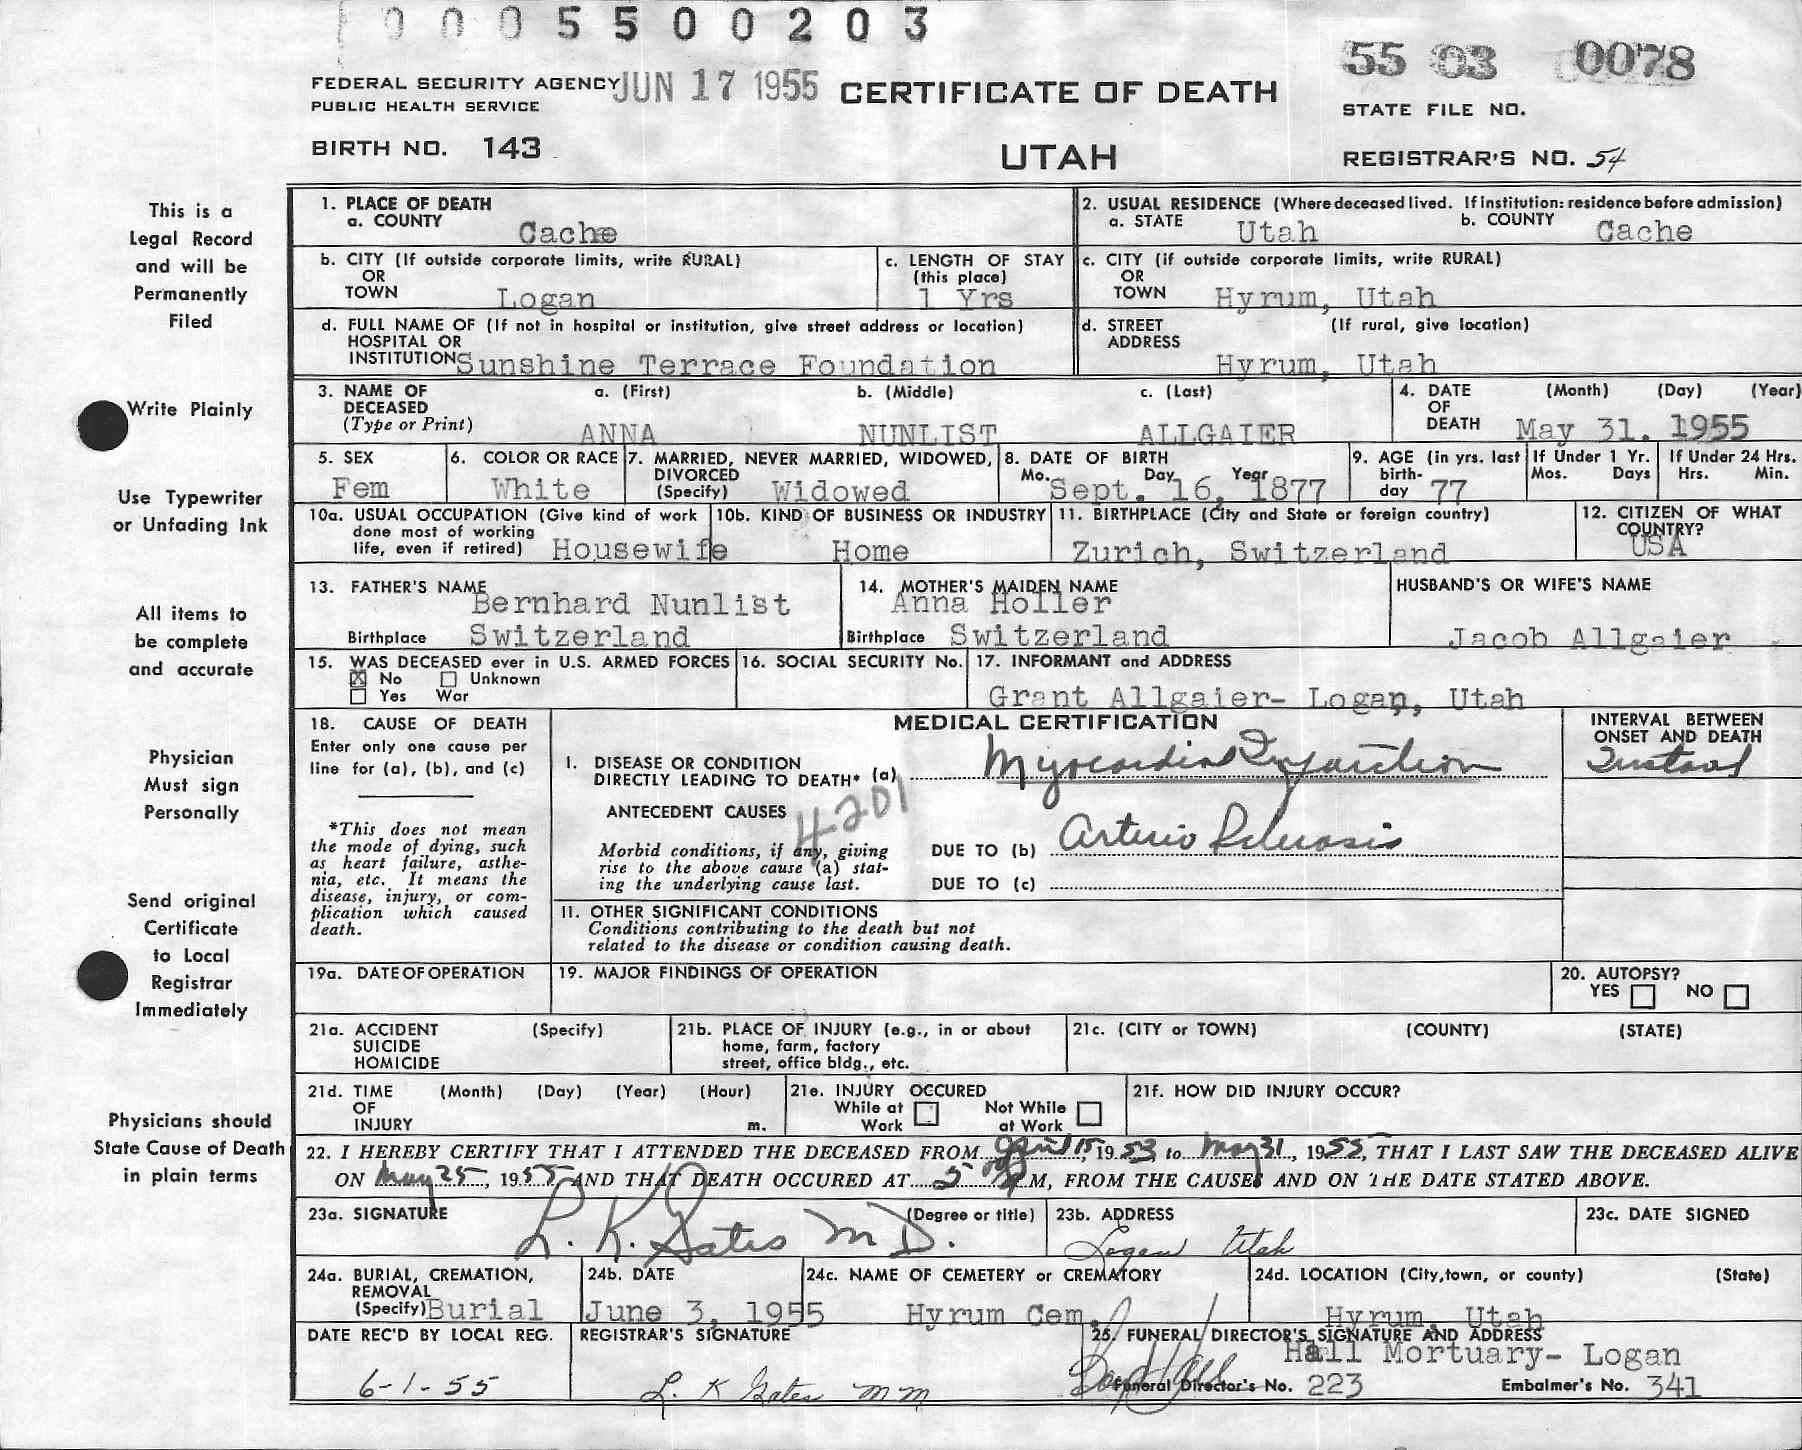 0005500203
55 03 0078
FEDERAL SECURITY AGENCY JUN 17 1955 CERTIFICATE OF DEATH
PUBLIC HEALTH SERVICE
STATE FILE NO.
BIRTH NO. 143 UTAH REGISTRAR'S NO. 54
This is a
Legal Record
and will be
Permanently
Filed
Write Plainly
Use Typewriter
or Unfading Ink
All items to
be complete
and accurate
Physician
Must sign
Personally
Send original
Certificate
to Local
Registrar
Immediately
Physicians should
State Cause of Death
in plain terms
1. PLACE OF DEATH
a. COUNTY Cache
2. USUAL RESIDENCE (Where deceased lived. If institution: residence before admission)
a. STATE Utah b. COUNTY Cache
b. CITY (If outside corporate limits, write RURAL)
OR
TOWN Logan
c. LENGTH OF STAY
(this place)
1 Yrs
c. CITY (if outside corporate limits, write RURAL)
OR
TOWN Hyrum, Utah
d. FULL NAME OF (If not in hospital or institution, give street address or location)
HOSPITAL OR
INSTITUTION Sunshine Terrace Foundation
d. STREET (If rural, give location)
ADDRESS
Hyrum, Utah
3. NAME OF a. (First) b. (Middle) c. (Last)
DECEASED
(Type or Print) ANNA NUNLIST ALLGAIER
4. DATE (Month) (Day) (Year)
OF
DEATH May 31. 1955
5. SEX
Fem
6. COLOR OR RACE
White
7. MARRIED, NEVER MARRIED, WIDOWED,
DIVORCED
(Specify) Widowed
8. DATE OF BIRTH
Mo. Day Year
Sept. 16, 1877
9. AGE (in yrs. last
birth-
day 77
If Under 1 Yr.
Mos. Days
If Under 24 Hrs.
Hrs. Min.
10a. USUAL OCCUPATION (Give kind of work
done most of working
life, even if retired) Housewife
10b. KIND OF BUSINESS OR INDUSTRY
Home
11. BIRTHPLACE (City and State or foreign country)
Zurich, Switzerland
12. CITIZEN OF WHAT
COUNTRY?
USA
13. FATHER'S NAME
Bernhard Nunlist
Birthplace Switzerland
14. MOTHER'S MAIDEN NAME
Anna Holler
Birthplace Switzerland
HUSBAND'S OR WIFE'S NAME
Jacob Allgaier
15. WAS DECEASED ever in U.S. ARMED FORCES
X No Unknown
Yes War
16. SOCIAL SECURITY No.
17. INFORMANT and ADDRESS
Grant Allgaier- Logan, Utah
18. CAUSE OF DEATH
Enter only one cause per
line for (a), (b), and (c)
*This does not mean
the mode of dying, such
as heart failure, asthe-
nia, etc. It means the
disease, injury, or com-
plication which caused
death.
MEDICAL CERTIFICATION
I. DISEASE OR CONDITION
DIRECTLY LEADING TO DEATH* (a) Myocardial Infarction
ANTECEDENT CAUSES
4201
Morbid conditions, if any, giving
rise to the above cause (a) stat-
ing the underlying cause last.
DUE TO (b) Arterio Sclerosis
DUE TO (c)
II. OTHER SIGNIFICANT CONDITIONS
Conditions contributing to the death but not
related to the disease or condition causing death.
INTERVAL BETWEEN
ONSET AND DEATH
Instant
19a. DATE OF OPERATION
19. MAJOR FINDINGS OF OPERATION
20. AUTOPSY?
YES NO
21a. ACCIDENT (Specify)
SUICIDE
HOMICIDE
21b. PLACE OF INJURY (e.g., in or about
home, farm, factory
street, office bldg., etc.
21c. (CITY or TOWN) (COUNTY) (STATE)
21d. TIME (Month) (Day) (Year) (Hour)
OF
INJURY m.
21e. INJURY OCCURED
While at Work Not While at Work
21f. HOW DID INJURY OCCUR?
22. I HEREBY CERTIFY THAT I ATTENDED THE DECEASED FROM April 15, 1953, to May 31, 1955, THAT I LAST SAW THE DECEASED ALIVE
ON May 25, 1955 AND THAT DEATH OCCURED AT 5 00 P M, FROM THE CAUSES AND ON THE DATE STATED ABOVE.
23a. SIGNATURE (Degree or title)
L. K. Gates M D.
23b. ADDRESS
Logan Utah
23c. DATE SIGNED
24a. BURIAL, CREMATION,
REMOVAL
(Specify) Burial
24b. DATE
June 3, 1955
24c. NAME OF CEMETERY or CREMATORY
Hyrum Cem.
24d. LOCATION (City, town, or county) (State)
Hyrum, Utah
DATE REC'D BY LOCAL REG.
6-1-55
REGISTRAR'S SIGNATURE
L. K Gates MM
25. FUNERAL DIRECTOR'S SIGNATURE AND ADDRESS
Hall Mortuary- Logan
Funeral Director's No. 223 Embalmer's No. 341